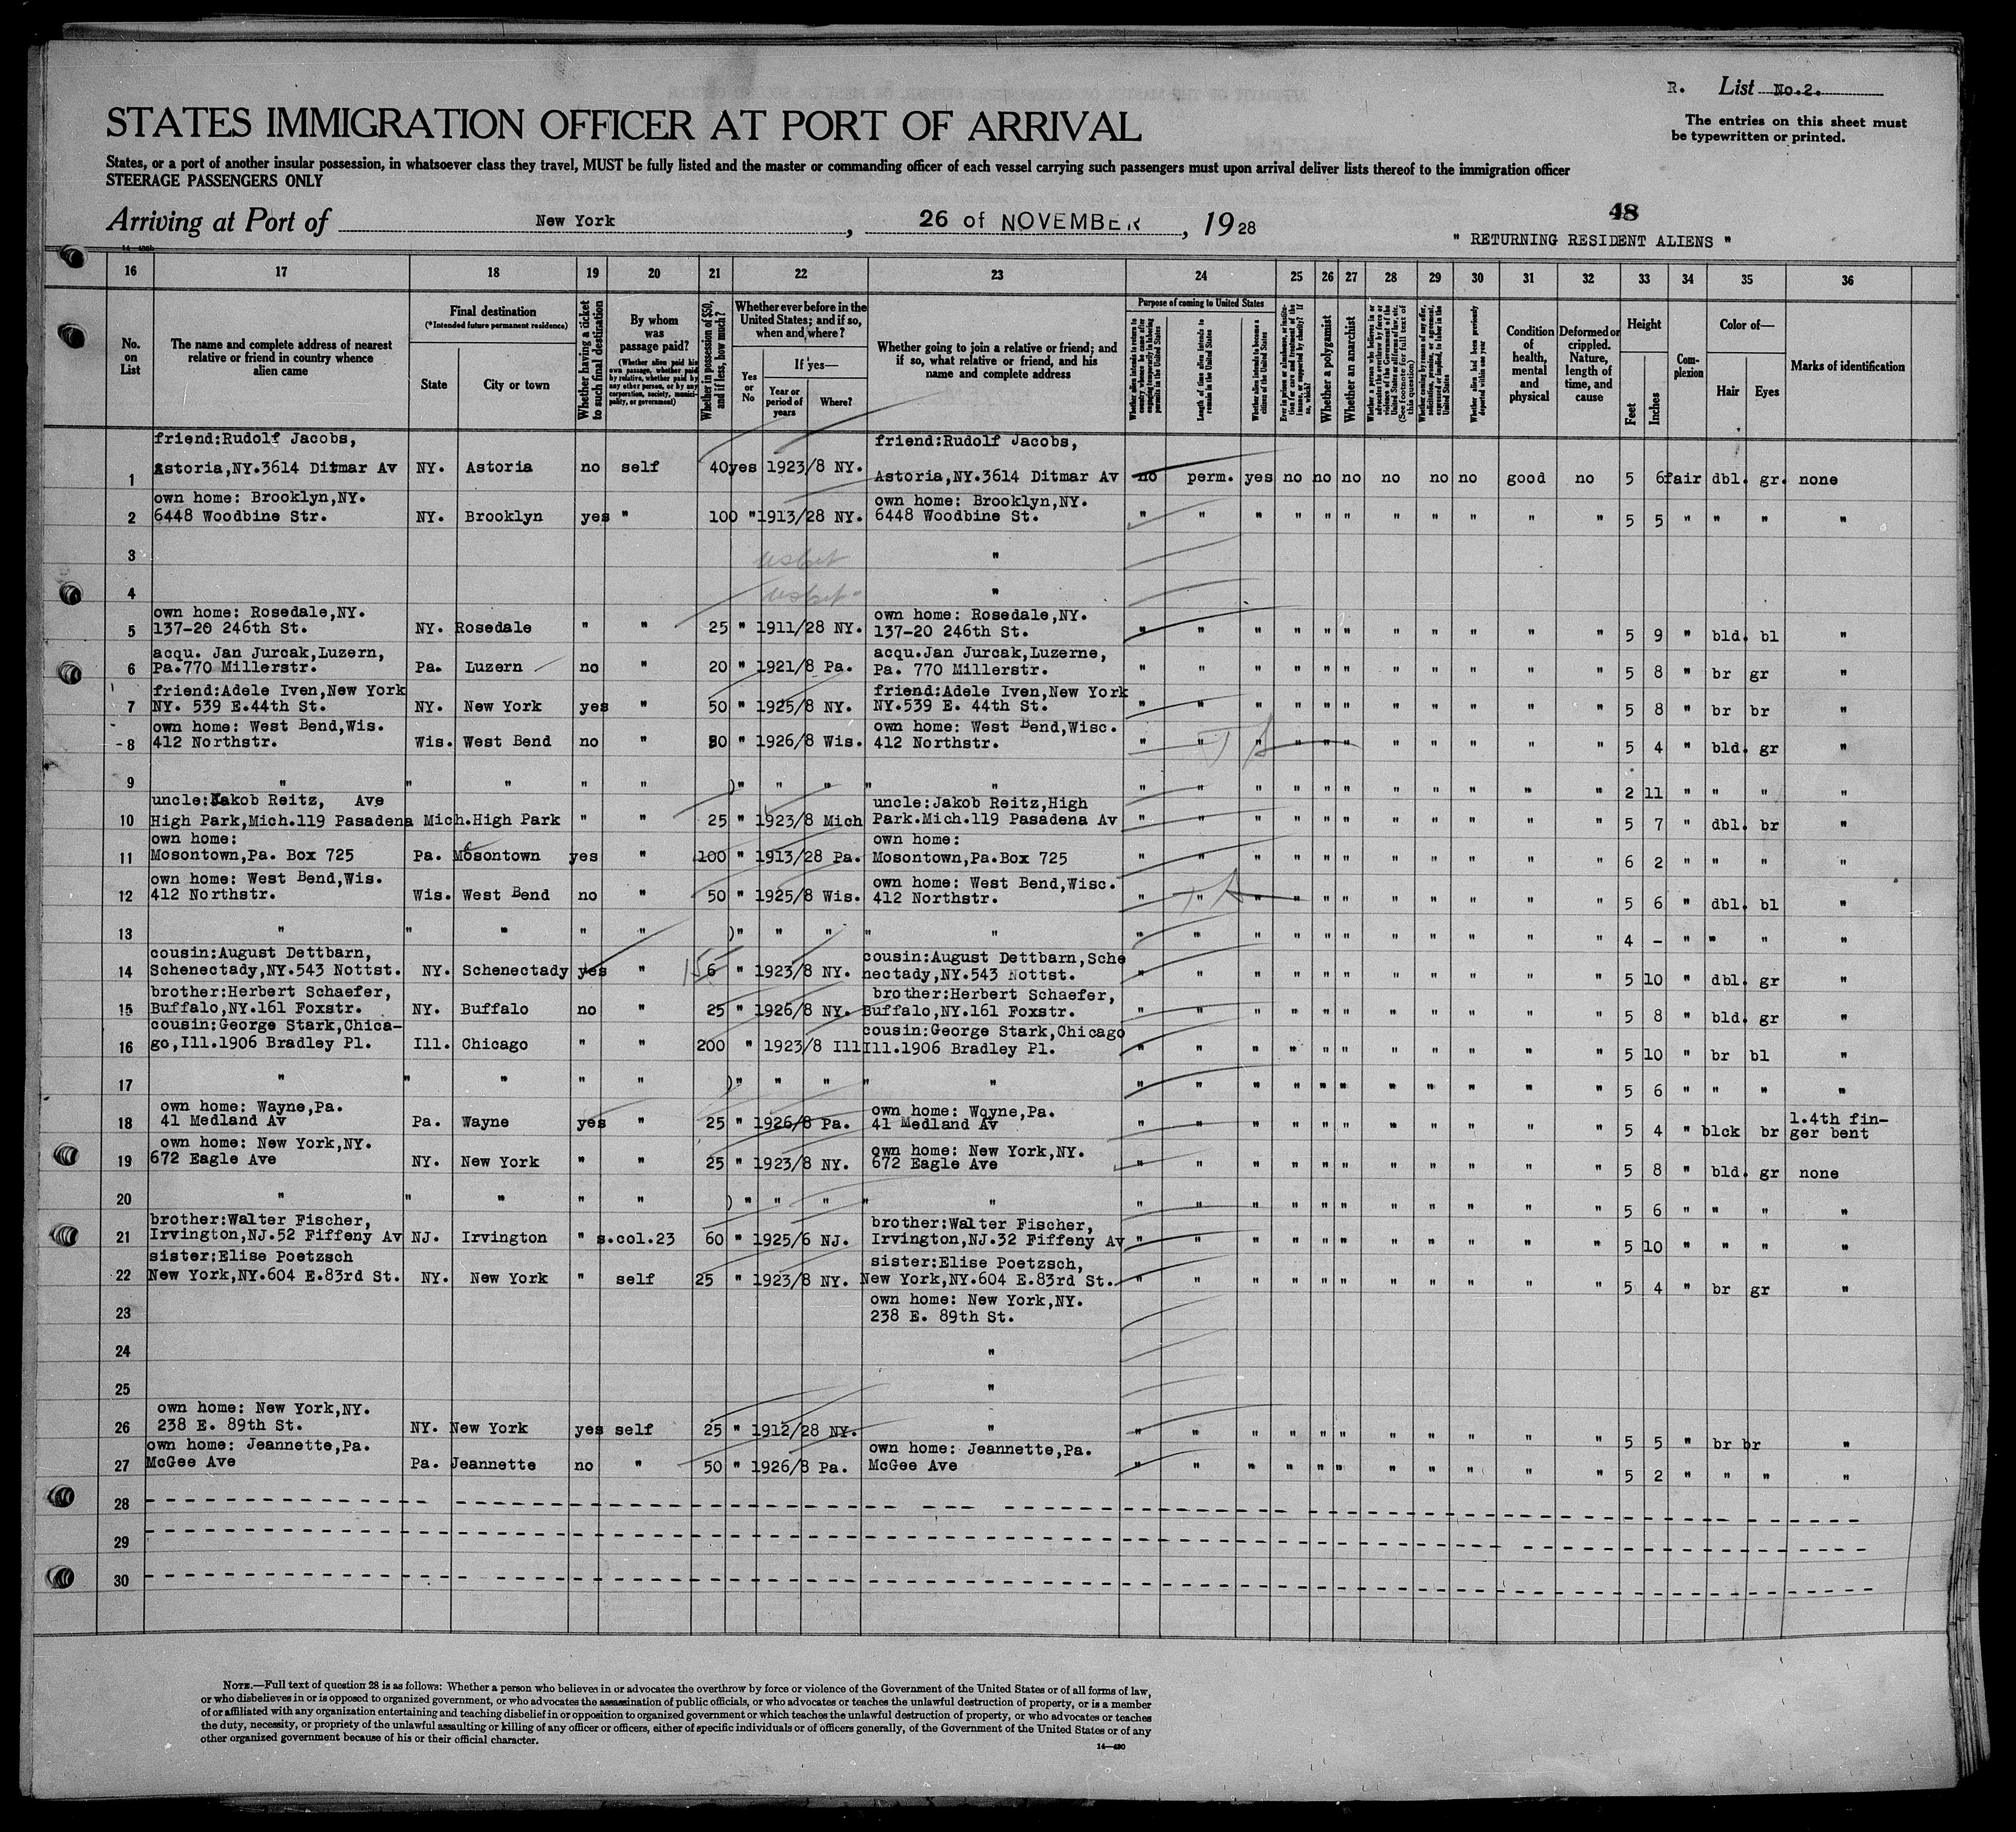 R. List No.2.
The entries on this sheet must
be typewritten or printed.
STATES IMMIGRATION OFFICER AT PORT OF ARRIVAL
States, or a port of another insular possession, in whatsoever class they travel, MUST be fully listed and the master or commanding officer of each vessel carrying such passengers must upon arrival deliver lists thereof to the immigration officer
STEERAGE PASSENGERS ONLY
48
Arriving at Port of New York, 26 of NOVEMBER, 1928
" RETURNING RESIDENT ALIENS "
16 17 18 19 20 21 22 23 24 25 26 27 28 29 30 31 32 33 34 35 36
No. on List
The name and complete address of nearest relative or friend in country whence alien came
Final destination
(*Intended future permanent residence)
State
City or town
Whether having a ticket to such final destination
By whom was passage paid?
(Whether alien paid his own passage, whether paid by relative, whether paid by any other person, or by any corporation, society, municipality, or government)
Whether in possession of $50, and if less, how much?
Whether ever before in the United States; and if so, when and where?
Yes or No
If yes—
Year or period of years
Where?
Whether going to join a relative or friend; and if so, what relative or friend, and his name and complete address
Purpose of coming to United States
Whether alien intends to return to country whence he came after engaging temporarily in laboring pursuits in the United States
Length of time alien intends to remain in the United States
Whether alien intends to become a citizen of the United States
Whether a polygamist
Whether an anarchist
Whether alien had been previously deported within one year
Condition of health, mental and physical
Deformed or crippled. Nature, length of time, and cause
Height
Feet
Inches
Complexion
Color of—
Hair
Eyes
Marks of identification
friend:Rudolf Jacobs, friend:Rudolf Jacobs,
1 Astoria,NY.3614 Ditmar Av NY. Astoria no self 40 yes 1923/8 NY. Astoria,NY.3614 Ditmar Av no perm. yes no no no no no no good no 5 6 fair dbl. gr. none
own home: Brooklyn,NY. own home: Brooklyn,NY.
2 6448 Woodbine Str. NY. Brooklyn yes " 100 " 1913/28 NY. 6448 Woodbine St. " " " " " " " " " " " 5 5 " " " "
3 usbet "
4 usbet "
own home: Rosedale,NY. own home: Rosedale,NY.
5 137-20 246th St. NY. Rosedale " " 25 " 1911/28 NY. 137-20 246th St. " " " " " " " " " " " 5 9 " bld. bl "
acqu. Jan Jurcak,Luzern, acqu.Jan Jurcak,Luzerne,
6 Pa.770 Millerstr. Pa. Luzern no " 20 " 1921/8 Pa. Pa. 770 Millerstr. " " " " " " " " " " " 5 8 " br gr "
friend:Adele Iven,New York friend:Adele Iven,New York
7 NY. 539 E.44th St. NY. New York yes " 50 " 1925/8 NY. NY.539 E. 44th St. " " " " " " " " " " " 5 8 " br br "
own home: West Bend,Wis. own home: West Bend,Wisc.
8 412 Northstr. Wis. West Bend no " 50 " 1926/8 Wis. 412 Northstr. " " " " " " " " " " " 5 4 " bld. gr "
9 " " " " " )" " " " " " " " " " " " " " " " 2 11 " " " "
uncle:Jakob Reitz, Ave uncle:Jakob Reitz,High
10 High Park,Mich.119 Pasadena Mich.High Park " " 25 " 1923/8 Mich Park.Mich.119 Pasadena Av " " " " " " " " " " " 5 7 " dbl. br "
own home: own home:
11 Mosontown,Pa. Box 725 Pa. Mosontown yes " 100 " 1913/28 Pa. Mosontown,Pa.Box 725 " " " " " " " " " " " 6 2 " " " "
own home: West Bend,Wis. own home: West Bend,Wisc.
12 412 Northstr. Wis. West Bend no " 50 " 1925/8 Wis. 412 Northstr. " " " " " " " " " " " 5 6 " dbl. bl "
13 " " " " " )" " " " " " " " " " " " " " " " 4 - " " " "
cousin:August Dettbarn, cousin:August Dettbarn,Sche
14 Schenectady,NY.543 Nottst. NY. Schenectady yes " 15 6 " 1923/8 NY. nectady,NY.543 Nottst. " " " " " " " " " " " 5 10 " dbl. gr "
brother:Herbert Schaefer, brother:Herbert Schaefer,
15 Buffalo,NY.161 Foxstr. NY. Buffalo no " 25 " 1926/8 NY. Buffalo,NY.161 Foxstr. " " " " " " " " " " " 5 8 " bld. gr "
cousin:George Stark,Chica- cousin:George Stark,Chicago
16 go,Ill.1906 Bradley Pl. Ill. Chicago " " 200 " 1923/8 Ill Ill.1906 Bradley Pl. " " " " " " " " " " " 5 10 " br bl "
17 " " " " " )" " " " " " " " " " " " " " " " 5 6 " " " "
own home: Wayne,Pa. own home: Wayne,Pa. l.4th fin-
18 41 Medland Av Pa. Wayne yes " 25 " 1926/8 Pa. 41 Medland Av " " " " " " " " " " " 5 4 " blck br ger bent
own home: New York,NY. own home: New York,NY.
19 672 Eagle Ave NY. New York " " 25 " 1923/8 NY. 672 Eagle Ave " " " " " " " " " " " 5 8 " bld. gr none
20 " " " " " )" " " " " " " " " " " " " " " " 5 6 " " " "
brother:Walter Fischer, brother:Walter Fischer,
21 Irvington,NJ.52 Fiffeny Av NJ. Irvington " s.col.23 60 " 1925/6 NJ. Irvington,NJ.32 Fiffeny Av " " " " " " " " " " " 5 10 " " " "
sister:Elise Poetzsch sister:Elise Poetzsch,
22 New York,NY.604 E.83rd St. NY. New York " self 25 " 1923/8 NY. New York,NY.604 E.83rd St. " " " " " " " " " " " 5 4 " br gr "
own home: New York,NY.
23 238 E. 89th St.
24 "
25 "
own home: New York,NY.
26 238 E. 89th St. NY. New York yes self 25 " 1912/28 NY. " " " " " " " " " " " " 5 5 " br br "
own home: Jeannette,Pa. own home: Jeannette,Pa.
27 McGee Ave Pa. Jeannette no " 50 " 1926/8 Pa. McGee Ave " " " " " " " " " " " 5 2 " " " "
28
29
30
NOTE.—Full text of question 28 is as follows: Whether a person who believes in or advocates the overthrow by force or violence of the Government of the United States or of all forms of law,
or who disbelieves in or is opposed to organized government, or who advocates the assassination of public officials, or who advocates or teaches the unlawful destruction of property, or is a member
of or affiliated with any organization entertaining and teaching disbelief in or opposition to organized government or which teaches the unlawful destruction of property, or who advocates or teaches
the duty, necessity, or propriety of the unlawful assaulting or killing of any officer or officers, either of specific individuals or of officers generally, of the Government of the United States or of any
other organized government because of his or their official character.
14—430